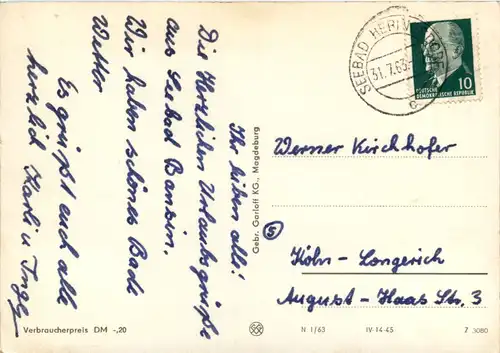 Ihr lieben alle!
Die Herzlichen Urlaubsgrüße
aus Seebad Bansin.
Wir haben schönes Bade
Wetter
Es grüßt euch alle
herzlich Karli u Ingy
Gebr. Garloff KG., Magdeburg
Verbraucherpreis DM -,20
SEEBAD HERINGSDORF
31.7.63
c
10
DEUTSCHE
DEMOKRATISCHE REPUBLIK
Werner Kirchhofer
5
Köln-Longerich
August-Haas Str. 3
N 1/63
IV-14-45
7 3080